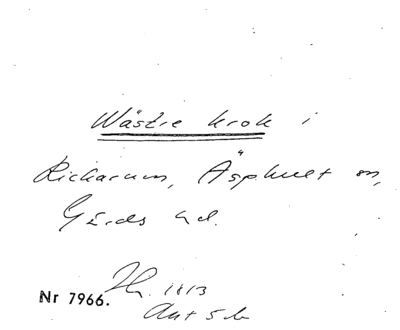 Wästre krok i
Rickarum, Äsphult sn,
Gärds hd.
Nr 7966. 1813
Ant 5 b